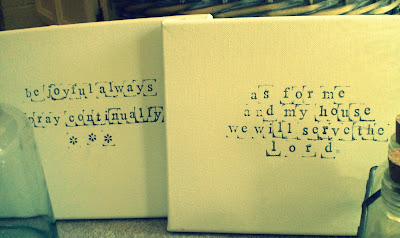 be joyful always
pray continually
***
as for me
and my house
we will serve the
lord.